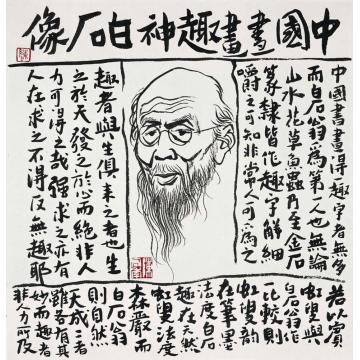 中國書畫趣神白石像
中國書畫得趣字者
而白石翁為第一人也無論
山水花草魚蟲乃至金石
篆隸皆作趣字解細
嚼之可知非常人可為之
趣者與生俱來之者也生
之於天發之於心而絕非人
力可得之哉强求之亦有
人在求之不得反無趣耶
若以賓
虹盟與
白石翁作
一比較則
虹盟韻
在筆墨
法度白石
趣在天然
虹盟法度
森嚴而
白石翁
則自然
天成二者
雖各有其
妙而趣者
非人力所及